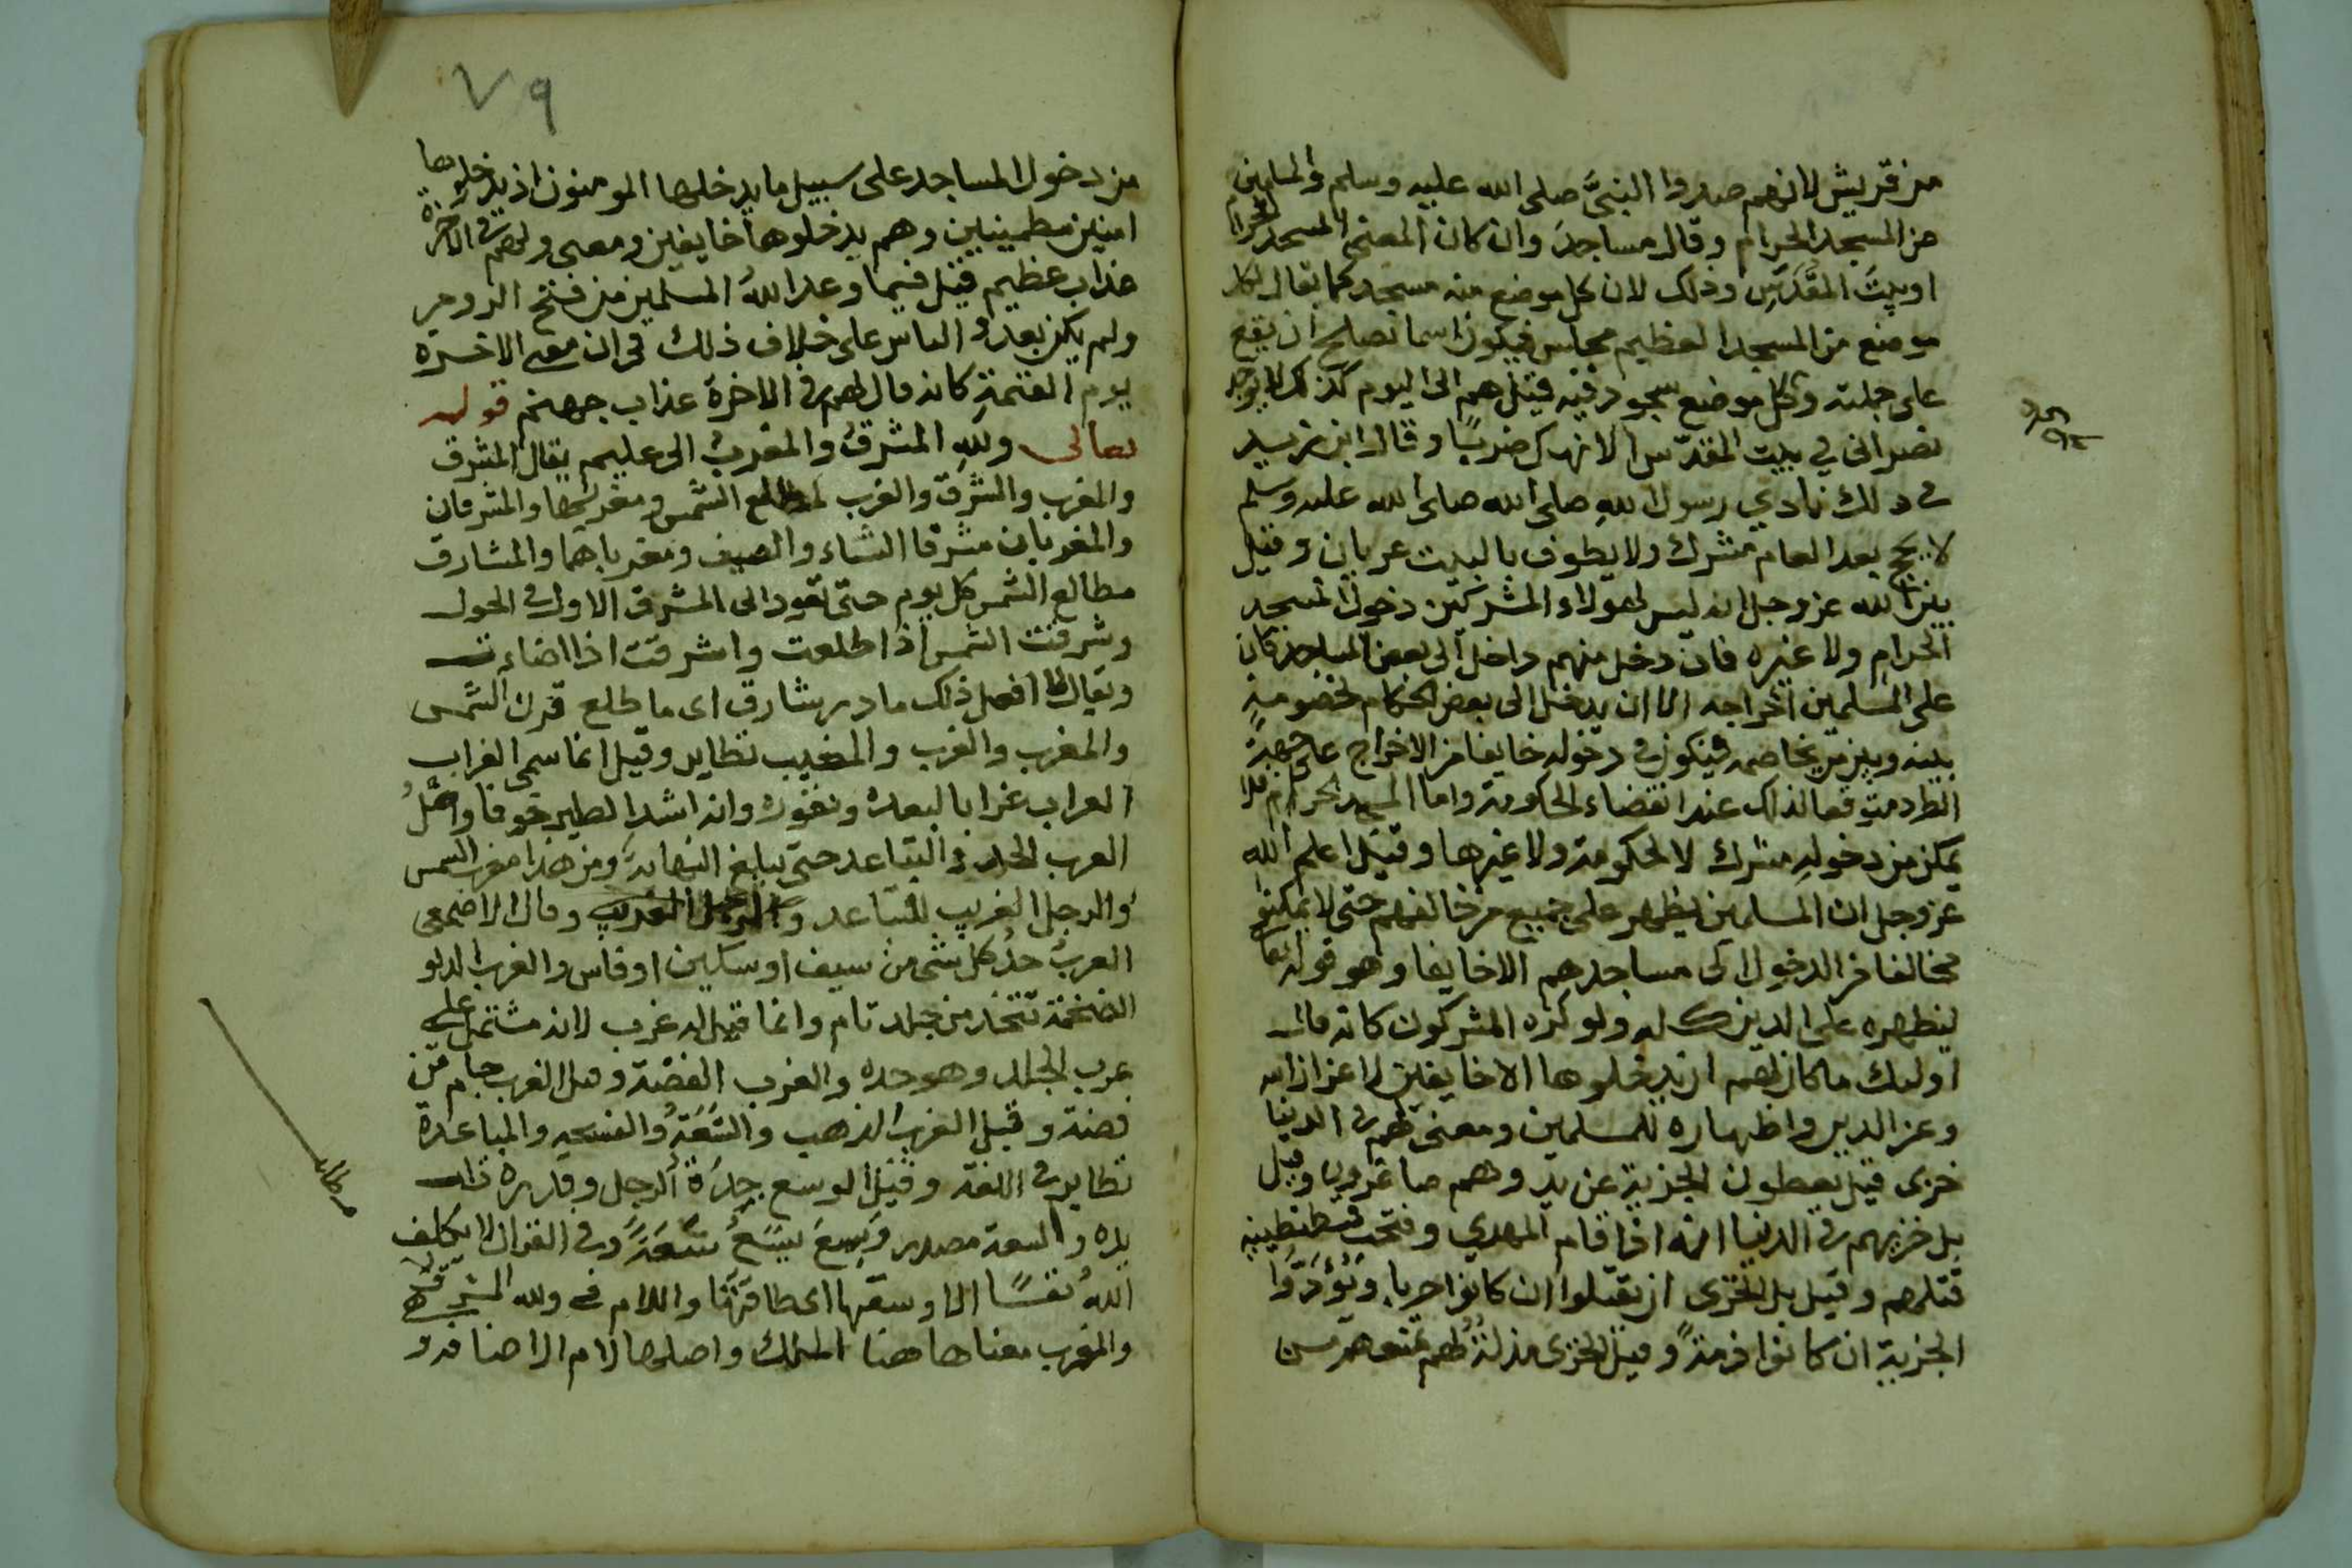 من قريش لانهم صدوا النبيَّ صلى الله عليه وسلم والمسلمين
من المسجد الحرام وقال مساجدَ وان كان المعنى المسجد الحرام
او بيتَ المقدّس وذلك لان كل موضع منه مسجد كما يقال لكل
موضع من المسجد العظيم مجلس فيكون اسما تصلح ان يقع
على جملته وكل موضع سجود فيه قيل هم الى اليوم كذلك لا يوجد
نصرانى في بيت المقدّس الا نهك ضربًا وقال ابن زيد
فى ذلك نادي رسول اللهِ صلى الله صلى الله عليه وسلم
لا يحج بعد العام مشرك ولا يطوف بالبيت عريان وقيل
بين الله عز وجل انه ليس لهولاء المشركين دخول المسجد
الحرامِ ولا غيره فان دخل منهم داخل الى بعض المساجد كان
على المسلمين اخراجه الا ان يدخل الى بعض الحكام لخصومةٍ
بينه وبين من يخاصمه فيكون فى دخوله خايفا من الاخراج على جهة
الطرد متوقعا لذلك عند انقضاء الحكومة واما المسجد الحرام فلا
يمكن من دخولهِ مشرك لا لحكومة ولا غيرها وقيل اعلم الله
عز وجل ان المسلمين يظهر على جميع من خالفهم حتى لا يمكن
مخالفا من الدخول الى مساجدهم الا خايفا وهو قوله تعالى
ليظهره على الدين كله ولو كره المشركون كانه قال
اوليك ما كان لهم ان يدخلوها الا خايفين لاعزاز الله
وعز الدين واظهاره للمسلمين ومعنى لهم فى الدنيا
خزى قيل يعطون الجزية عن يد وهم صاغرون وقيل
بل خزيهم فى الدنيا انه اذا قام المهدي وفتحت قسطنطينية
قتلهم وقيل بل الخزى ان يقتلوا ان كانوا حربا ويُؤدّوا
الجزية ان كانوا ذمةً وقيل الخزى مذلةٌ لهم بمنعهم
٧٩
من دخول المساجد على سبيل ما يدخلها المومنون اذ يدخلونها
امنين مطمينين وهم يدخلوها خايفين ومعنى ولهم فى الاخرة
عذاب عظيم قيل فيما وعد اللهُ المسلمين من فتح الروم
ولم يكن بعدُ والناس على خلاف ذلك فى ان معنى الاخرة
يوم القيمة كانه قال لهم فى الاخرة عذاب جهنم قوله
تعالى وللهِ المشرقُ والمغربُ الى عليم يقال المشرق
والمغرب والشرق والغرب لمطلع الشمس ومغربها والمشرقان
والمغربان مشرقا الشتاء والصيف ومغرباهما والمشارق
مطالع الشمس كل يوم حتى تعود الى المشرق الاول فى الحول
وشرقت الشمس اذا طلعت واشرقت اذا اضاءت
ويقال لا افعل ذلك ما در شارق اى ما طلع قرن الشمس
والمغرب والغرب والمغيب نظاير وقيل انما سمى الغراب
الغراب غرابا لبعده ونفوره وانه اشد الطير خوفا واصلُ
الغرب الحد فى التباعد حتى يبلغ النهاية ومن هذا مغرب الشمس
والرجل الغريب للتباعد والرجل الغريب وقال الاصمعى
الغربُ حدُ كل شى من سيف او سكين او فاس والغرب الدلو
الضخمة تتخذ من جلد تام وانما قيل له غرب لانه مشتمل على
غرب الجلد وهو حده والغرب الفضة وقيل الغرب جام من
فضة وقيل الغرب الذهب والسَّعَةُ والفسحة والمباعدة
نظاير فى اللغة وقيل الوسع جِدَة الرجل وقدره ذات
يده والسعة مصدر وَسِعَ يَسَعُ سَعَةً وفى القران لا يكلف
اللهُ نفسًا الا وسعها اى طاقتَها واللام فى ولله المشرق
والمغرب معناها هنا الملك واصلها لام الاضافة و